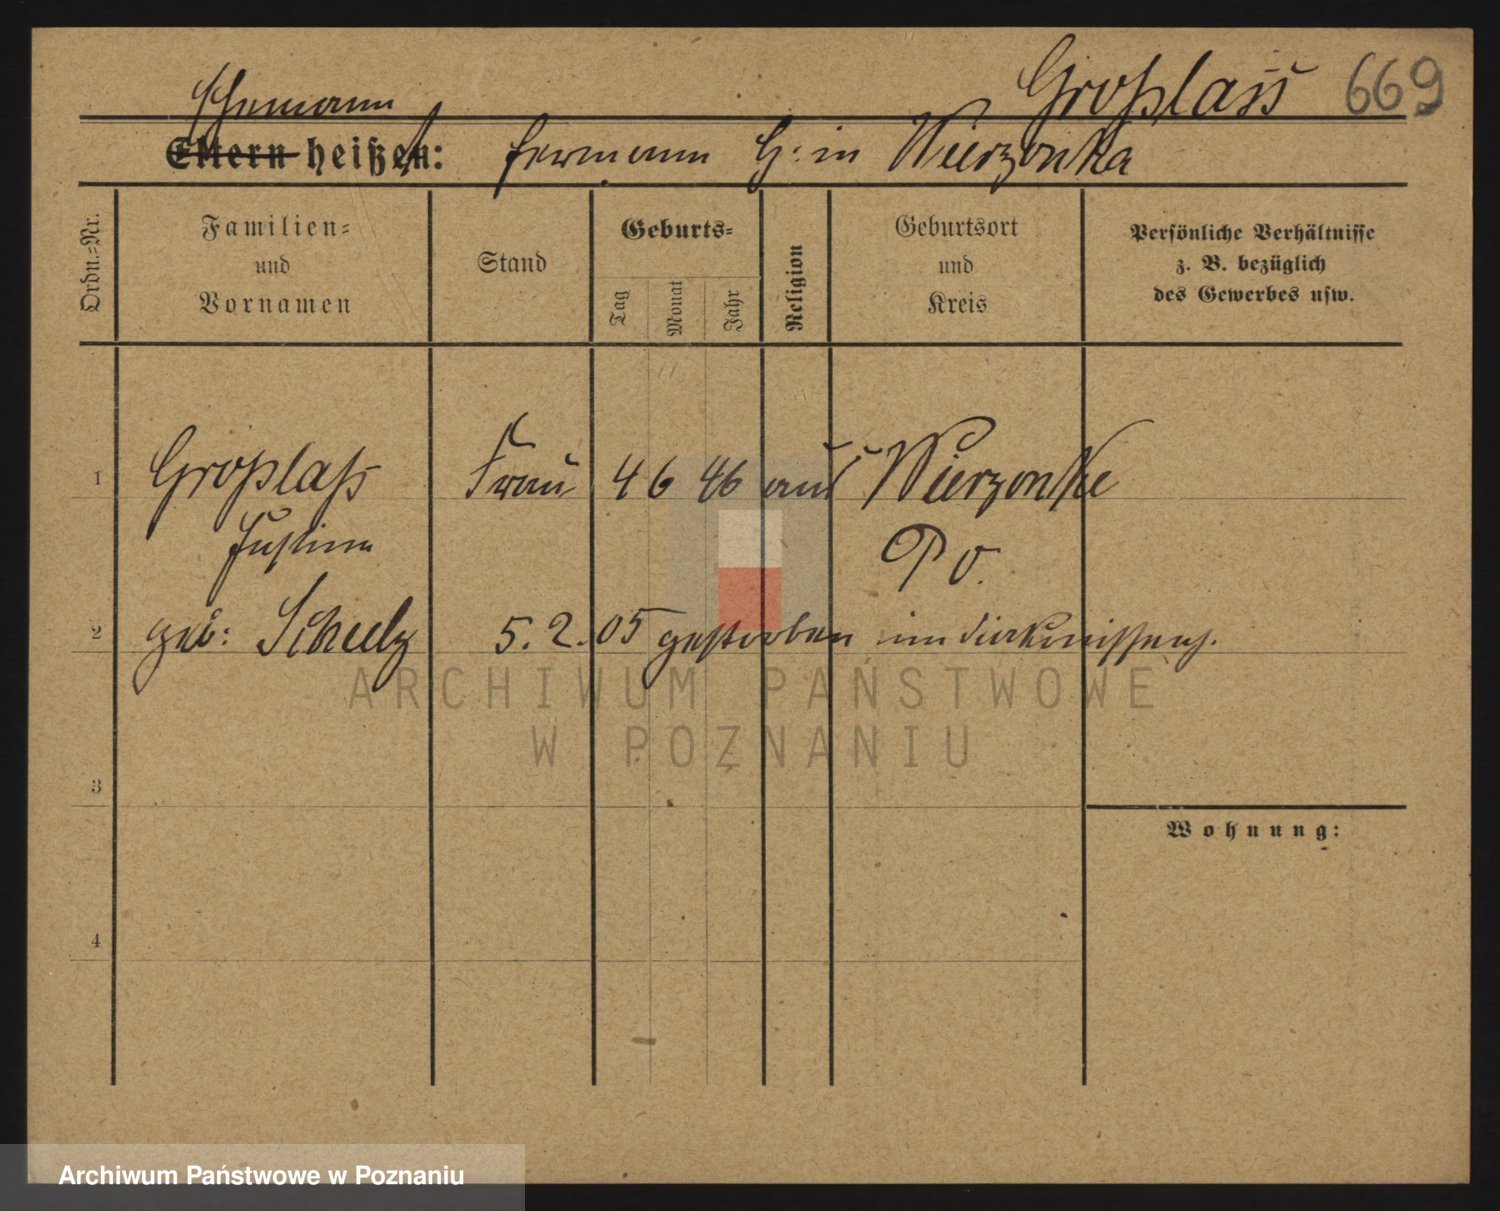 Großlass 669
Ehemann
Eltern heißen: Hermann G: in Wierzonka
Ordn.-Nr.
Familien-
und
Vornamen
Stand
Geburts-
Tag
Monat
Jahr
Religion
Geburtsort
und
Kreis
Persönliche Verhältnisse
z. B. bezüglich
des Gewerbes usw.
1 Großlaß Frau 4 6 46 aus Wierzonke
Justine Po.
2 geb: Schulz 5. 2. 05 gestorben im Diakonissenh.
ARCHIWUM PAŃSTWOWE
W POZNANIU
3
Wohnung:
4
Archiwum Państwowe w Poznaniu